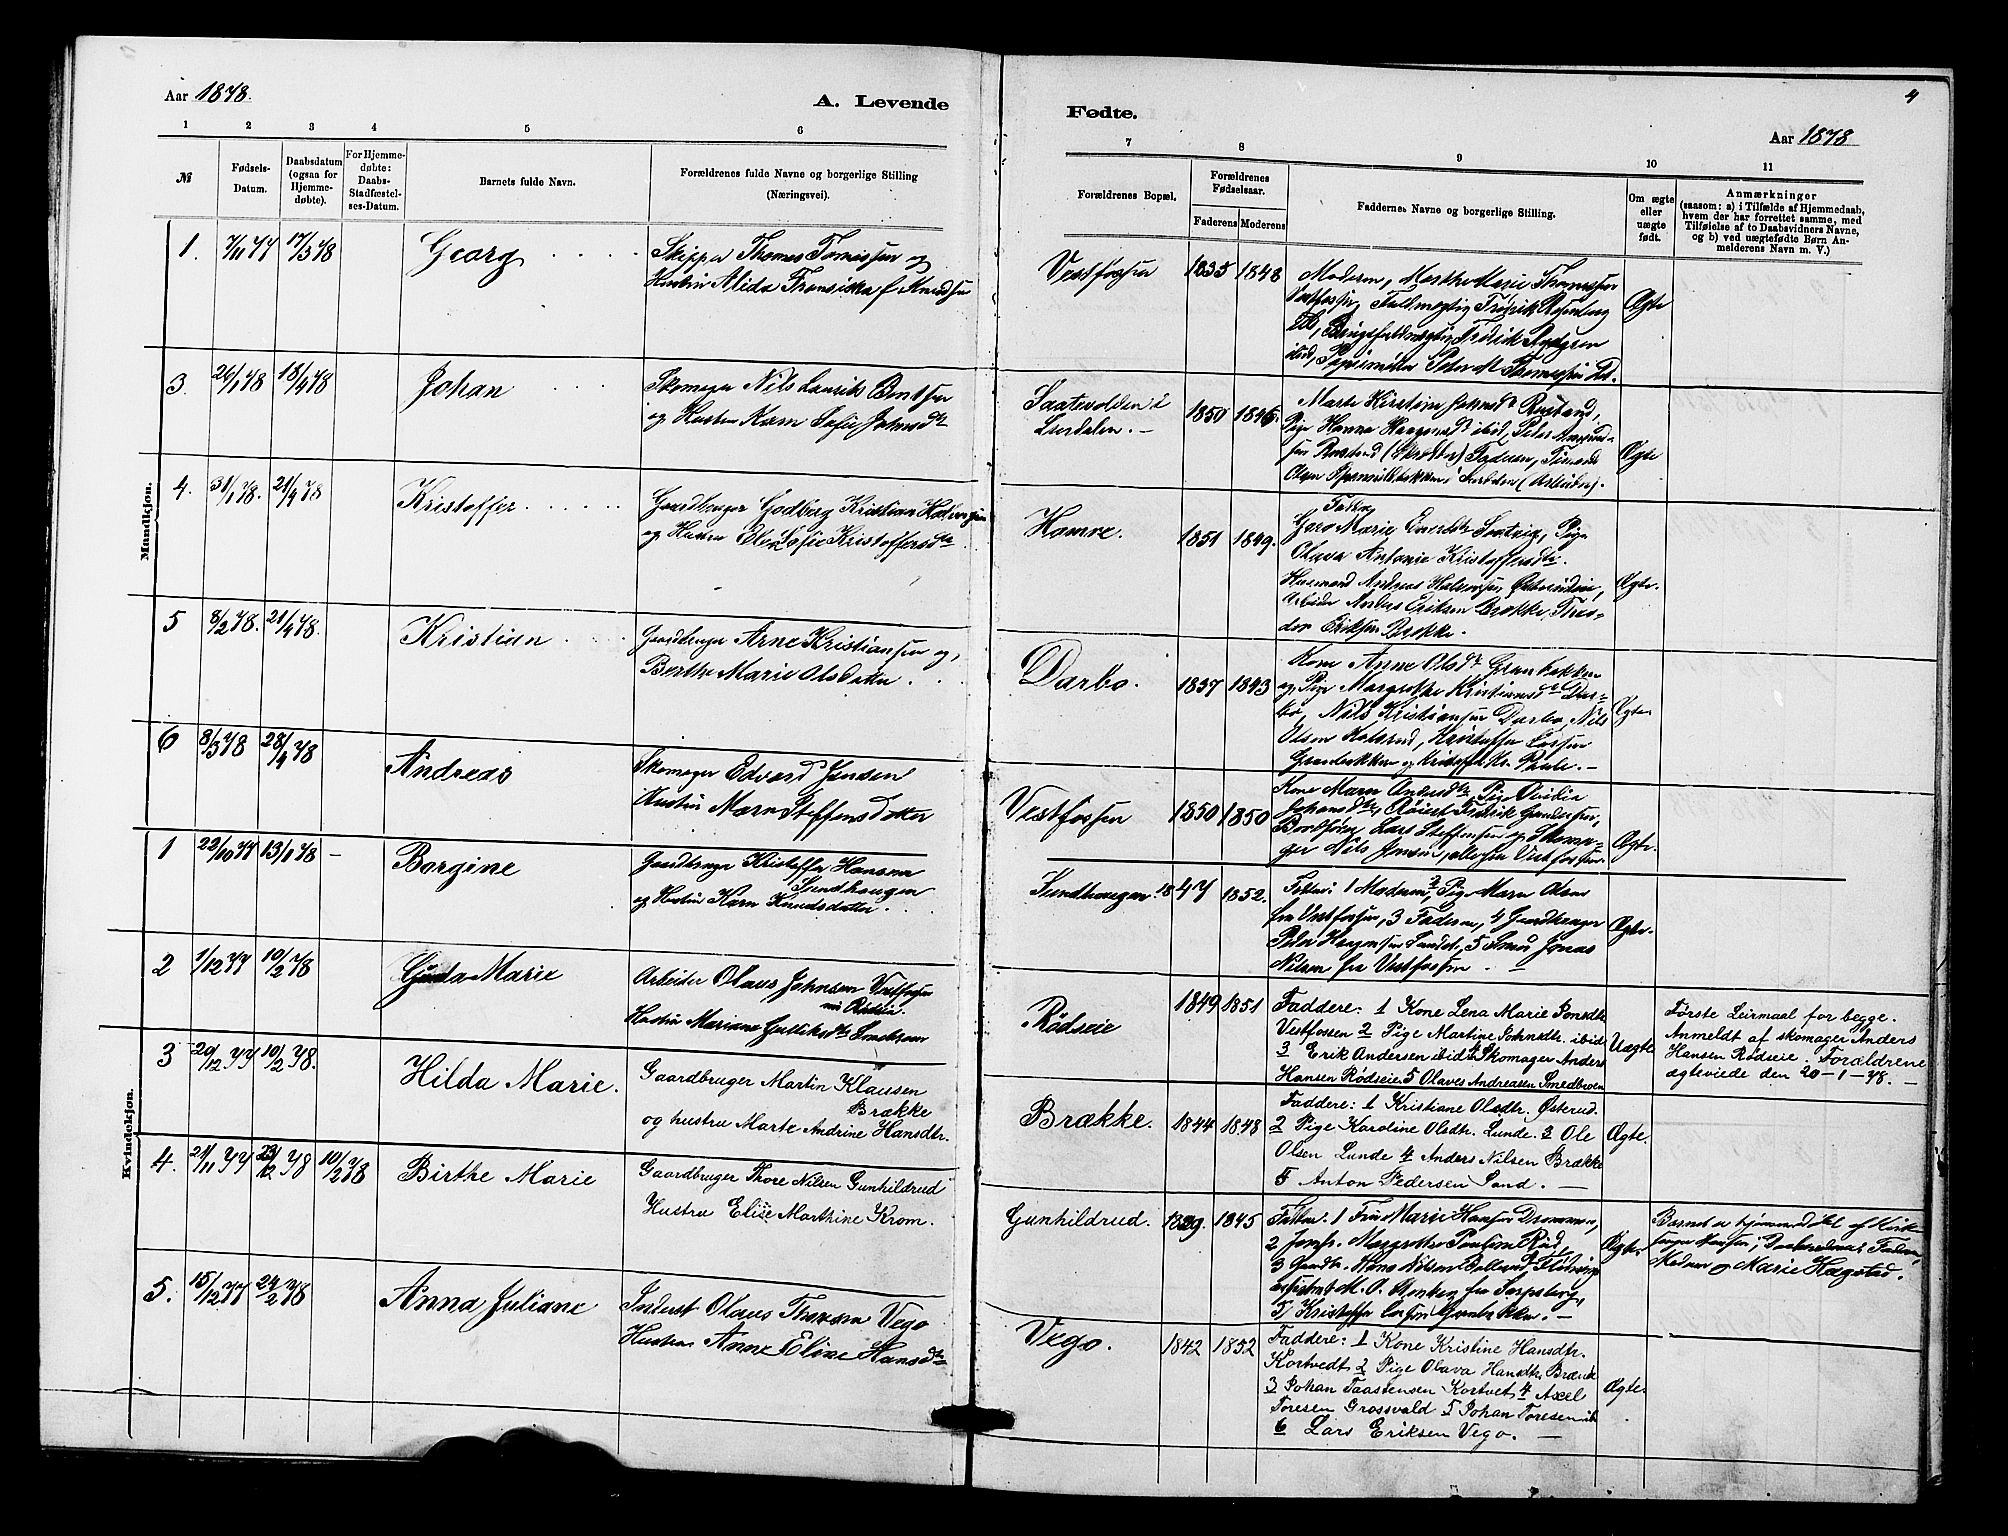 4
Aar 1878.
A. Levende
Fødte.
Aar 1878
1 2 3 4 5 6
7 8 9 10 11
№
Fødsels-Datum.
Daabsdatum (ogsaa for Hjemme-døbte).
For Hjemme-døbte: Daabs-Stadfæstel-ses-Datum.
Barnets fulde Navn.
Forældrenes fulde Navne og borgerlige Stilling
(Næringsvei).
Forældrenes Bopæl.
Forældrenes Fødselsaar.
Faderens Moderens
Faddernes Navne og borgerlige Stilling.
Om ægte eller uægte født.
Anmærkninger
(saasom: a) i Tilfælde af Hjemmedaab,
hvem der har forrettet samme, med
Tilføielse af to Daabsvidners Navne,
og b) ved uægtefødte Børn An-
melderens Navn m. V.)
Mandkjøn.
1. 7/11 77 17/3 78 Georg
Skipper Thomas Tomissen og
Hustru Alida Fransiska f. Knudsen
Vestfossen 1835 1848
Moderen, Marthe Marie Thomessen
Vestfossen, Fuldmægtig Fredrik Rosenberg
ibid, Papirmester Peter M. Thomessen ibd.
Ægte
3. 26/1 78 18/4 78 Johan
Skomager Nils Laurits Bentsen
og Hustru Karn Sofie Johnsdtr
1850 1846
Marte Kirstine Johnsdtr Rustand,
Pige Hanna Haagensdtr ibid, Peder
Ægte
4. 31/1 78. 21/4 78 Kristoffer
Gaardbruger Godberg Kristian
og Hustru Elen Sofie Kristoffersdtr.
Hamre. 1851 1849.
Faddere
Goro Marie Evensdtr Saatvig, Pige
Olava Antonie Kristoffersdtr.
Husmand Andreas Halvorsen,
Arbeider Anders Eriksen Brække, Theo-
dor Eriksen Brække.
Ægte.
5 8/2 78. 21/4 78. Kristian
Gaardbruger Arne Kristiansen og
Berthe Marie Olsdatter.
Darbo. 1837 1843
Kone Anne Olsdtr Granbakken
og Pige Margrethe Kristiansdtr Dar-
bo, Nils Kristiansen Darbo, Nils
Olsen, Kristoffer Larsen
Granbakken og Kristoffer Kr.
Ægte
6 8/3 78 28/4 78 Andreas
Skomager Edvard Jensen
Hustru Maren Steffensdatter
Vestfossen 1850 1850
Kone Maren Andersdtr, Pige Ovidia
Johansdtr, Fredrik Gundersen,
Lars Steffensen og Skoma-
ger Nils Jensen, alle fra Vestfossen.
Ægte.
Kvindekjøn.
1 22/10 77 13/1 78 – Borgine
Gaardbruger Kristoffer Hansen
Sundhaugen
og Hustru Karn Knudsdatter.
Sundhaugen. 1847 1852.
Faddere: 1 Moderen, 2 Pige Maren Olsen
fra Vestfossen, 3 Faderen, 4 Gaardbruger
Peder Haagensen Sundet, 5 Smed Jonas
Nilsen fra Vestfossen. –
Ægte.
2 1/12 77 10/2 78 Gusta Marie
Arbeider Olaus Johnsen Vestfossen
nu Rødseie.
Hustru Mariane Gulliksdtr
Rødseie 1849 1851
Faddere: 1 Kone Lena Marie Jonsdtr
Vestfossen 2 Pige Martine Johnsdtr. ibid
3 Erik Andersen ibid 4 Skomager Anders
Hansen Rødseie 5 Olaves Andreasen Smedbroen
Uægte
Første Leirmaal for begge.
Anmeldt af skomager Anders
Hansen Rødseie. Forældrene
ægteviede den 20–1–78. –
3 20/12 77 10/2 78. Hilda Marie.
Gaardbruger Martin Klausen
Brække
og hustru Marte Andrine Hansdtr.
Brække. 1844 1848
Faddere: 1 Kristiane Olsdtr. Østerud.
2 Pige Karoline Olsdtr. Lunde. 3 Ole
Olsen Lunde 4 Anders Nilsen Brække
5 Anton Pedersen Sand. –
Ægte.
4. 21/11 77 23/12 78 10/2 78 Birthe Marie
Gaardbruger Thore Nilsen Gunhildrud
Hustru Elise Marthine Krom.
Gunhildrud. 1829. 1845
Faddere. 1 Fru Marie Hansen Drammen,
2 Jomfr. Margrethe Pauline Rød,
3 Gaardbr. Hans Nilsen
fra Sarpsborg,
5, Kristoffer Larsen Granbakken. –
Ægte
Barnet er hjemmedøbt af Kirke-
sanger Hansen; Daabsvidner: Faderen,
Moderen og Marie Hægstad.
5. 15/12 77 24/2 78 Anna Juliane
Inderst Olaus Thoresen Vego
Hustru Anne Eline Hansdtr
Vego. 1842 1852
Faddere: 1 Kone Kristine Hansdtr.
Kortvedt 2 Pige Olava Hansdtr. Brække
3 Johan Taastensen Kortvet 4 Axel
Toresen Grossvald 5 Johan Toresen ib
6 Lars Eriksen Vego. –
Ægte.